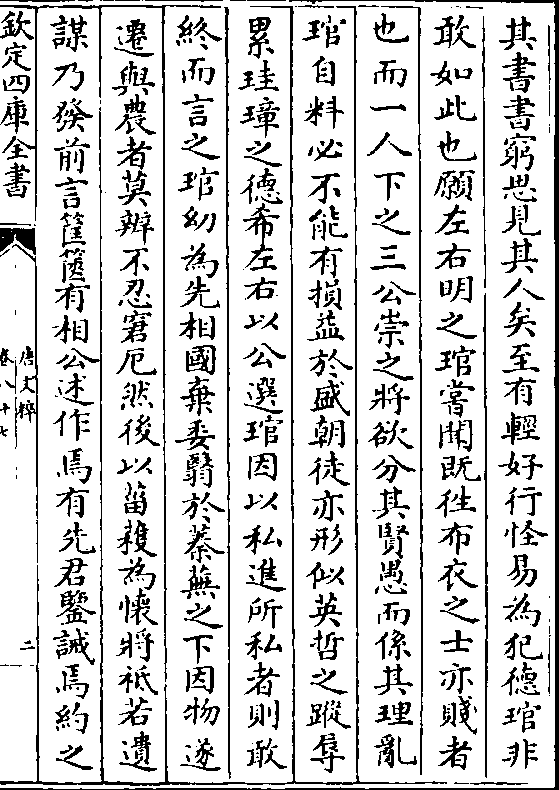 其書書窮思見其人矣至有輕好行怪易為犯德琯非
敢如此也願左右明之琯嘗聞既徃布衣之士亦賤者
也而一人下之三公崇之將欲分其賢愚而係其理亂
琯自料必不能有損益於盛朝徒亦形似英哲之蹤辱
累珪璋之德希左右以公選琯因以私進所私者則敢
終而言之琯㓜為先相國棄委翳於蓁蕪之下因物遂
遷與農者莫辨不忍窘厄然後以菑穫為懷將祗若遺
謀乃發前言筐篋有相公述作焉有先君鑒誡焉約之
欽定四庫全書
唐文粹
卷八十七
二